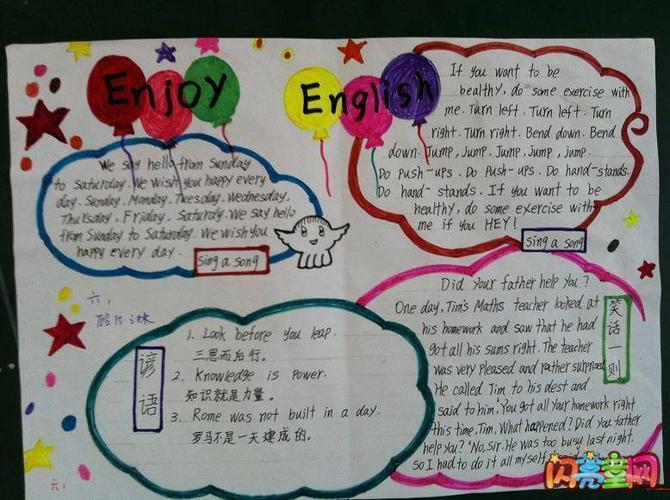 Enjoy English
We say hello from Sunday
to Saturday. We wish you happy every
day. Sunday, Monday, Tuesday, Wednesday,
Thursday, Friday, Saturdy. We say hello
from Sunday to Saturday. We wish you
happy every day.
Sing a song
If you want to be
healthy, do some exercise with
me. Turn left. Turn left. Turn
right. Turn right. Bend down. Bend
down. Jump, jump, Jump, jump, jump.
Do Push-ups. Do Push-ups. Do hand-stands.
Do hand-stands. If you want to be
healthy, do some exercise with
me if you HEY!
Sing a song
六、
谚语
1. Look before you leap.
三思而后行。
2. Knowledge is Power.
知识就是力量。
3. Rome was not built in a day.
罗马不是一天建成的。
六、
Did your father help you?
One day, Tim's Maths teacher looked at
his homework and saw that he had
got all his sums right. The teacher
was very pleased and rather surprised
He called Tim to his dest and
said to him, You got all your homework right
this time, Tim. What happened? Did you father
help you? No, sir. He was too busy last night,
so I had to do it all myself
笑话一则
闪亮童网